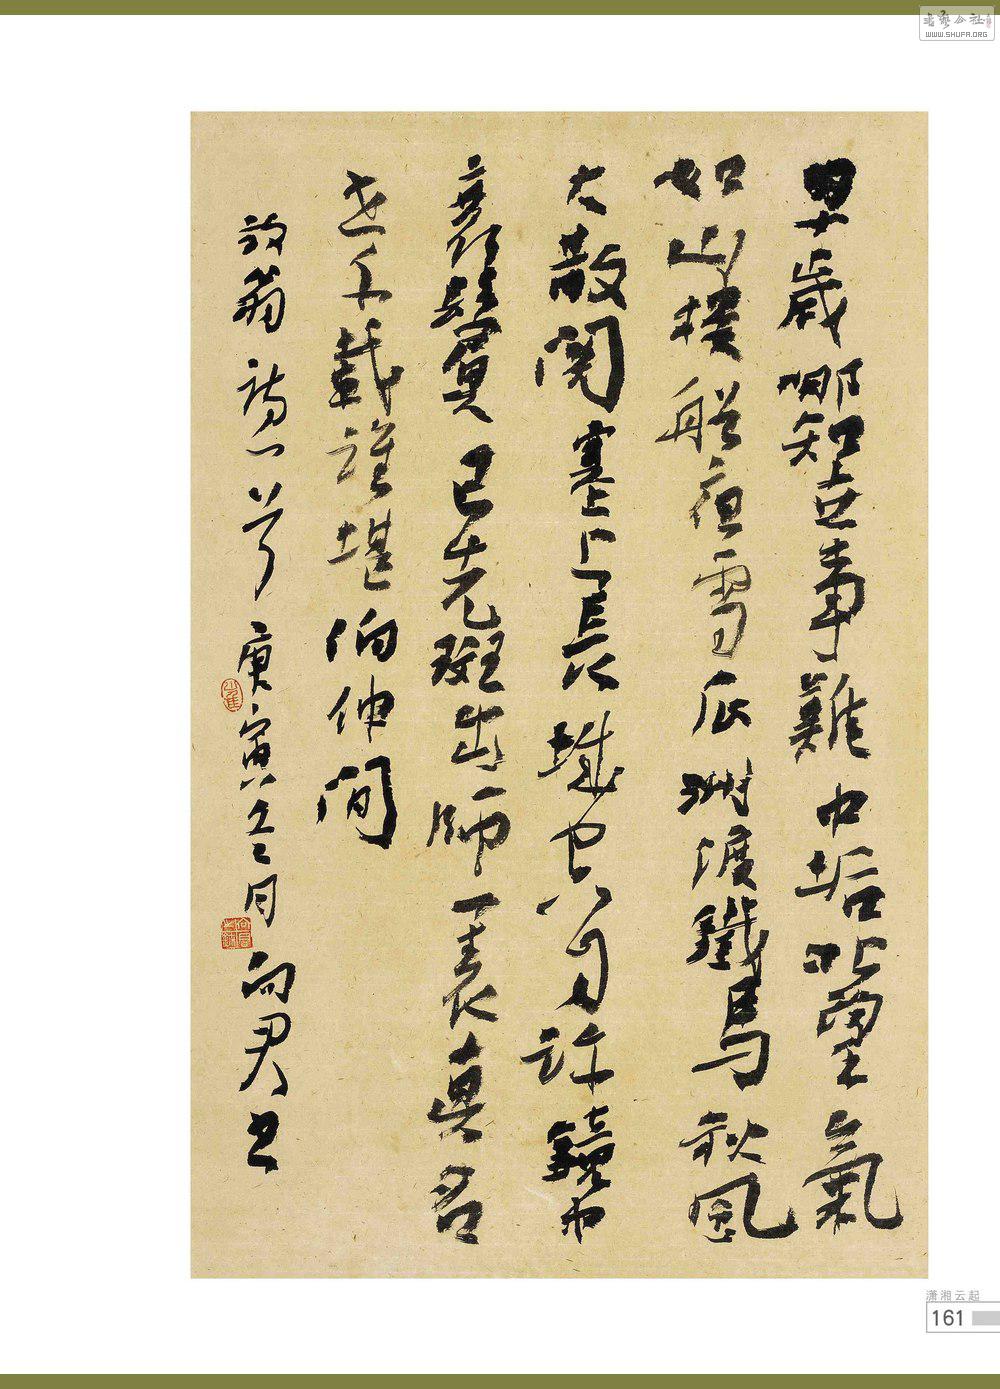 書藝公社
WWW.SHUFA.ORG
早歲哪知世事難中北望氣
如山樓船夜雪瓜洲渡鐵馬秋風
大散関塞上長城空自許鏡中
衰鬢已先斑出師一表真名
世千載誰堪伯仲間
放翁詩一首庚寅冬月向君书
潇湘云起
161